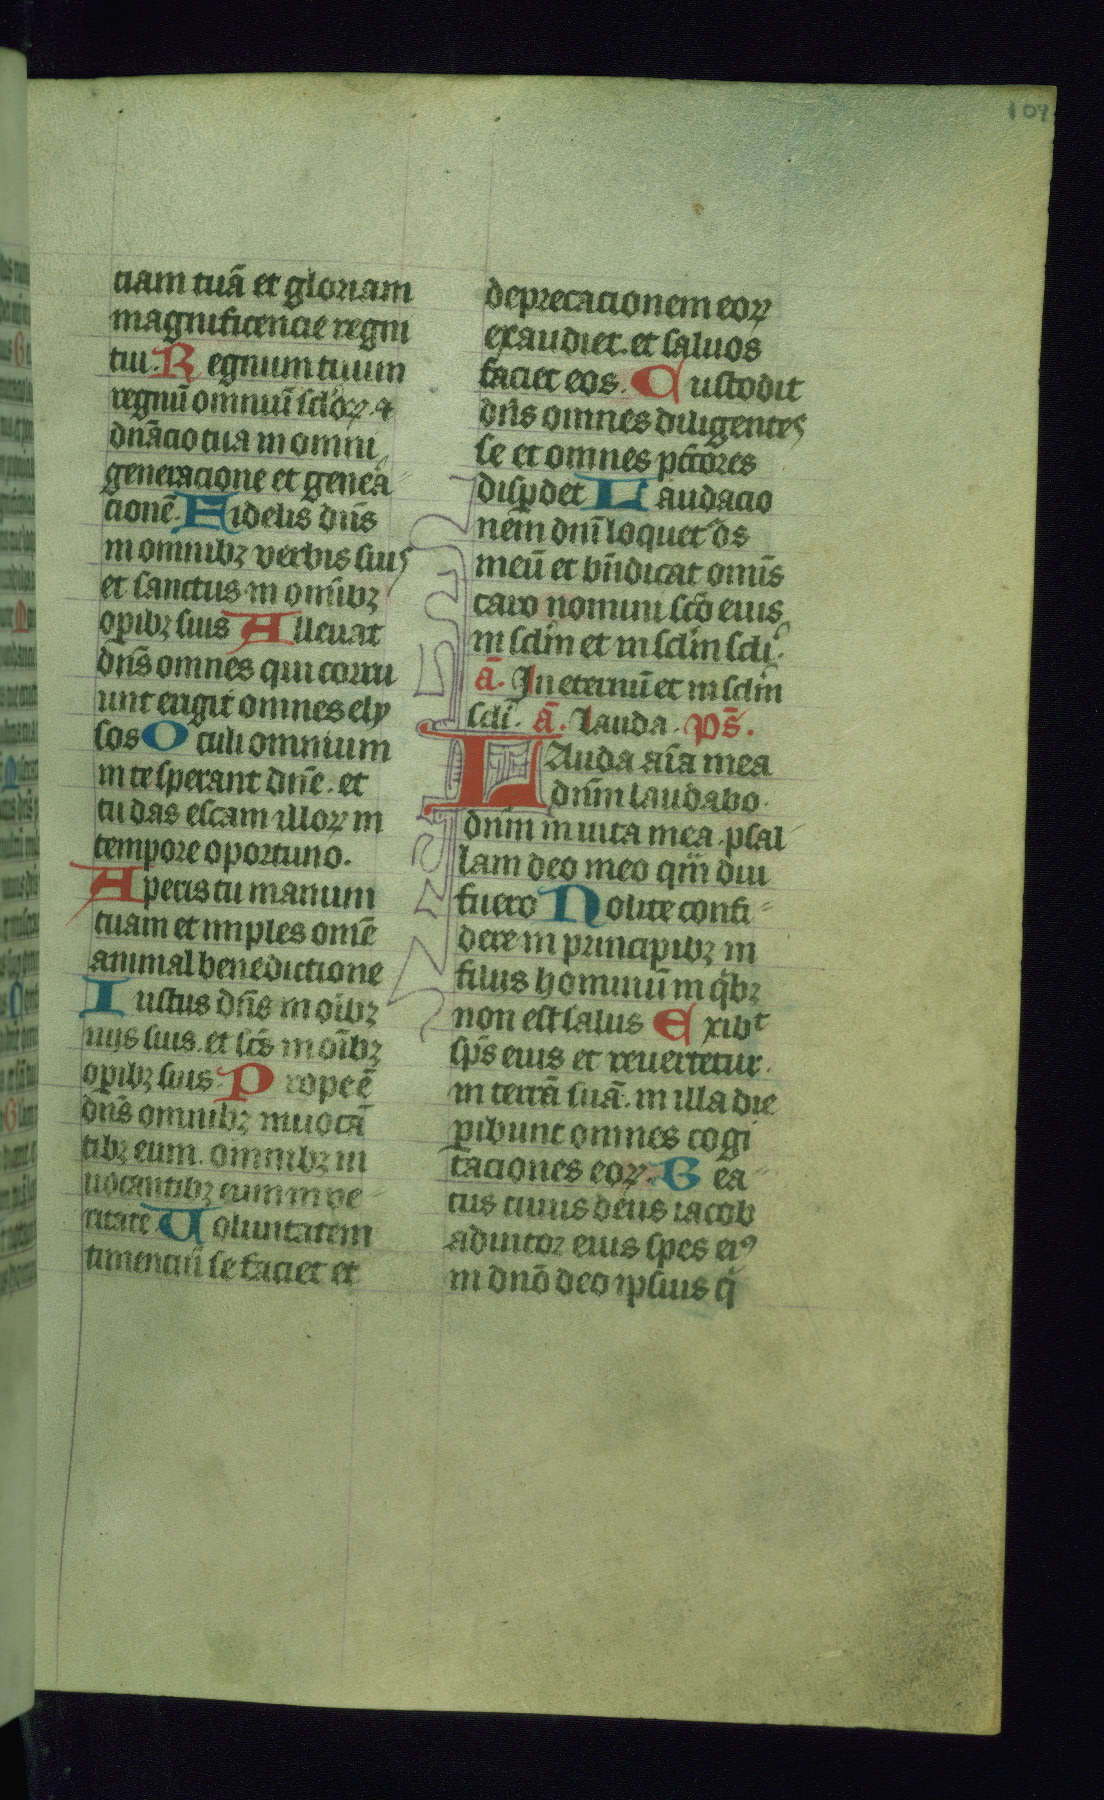 109
ciam tuā et gloriam
magnificencie regni
tui. Regnum tuum
regnū omniū scl'oꝝ. ⁊
dn̄acio tua in omni
generacione et genera
cionē. Fidelis dn̄s
in omnibꝫ verbis suis
et sanctus in om̄ibꝫ
oꝑibꝫ suis Alleuat
dn̄s omnes qui corru
unt erigit omnes ely
sos Oculi omnium
in te sperant dn̄e. et
tu das escam illoꝝ in
tempore oportuno.
Aperis tu manum
tuam et imples om̄e
animal benedictione
Iustus dn̄s in oībꝫ
uijs suis. et sc̄s in oībꝫ
oꝑibꝫ suis. Prope ē
dn̄s omnibꝫ inuocā
tibꝫ eum. omnibꝫ in
uocantibꝫ eum in ve-
ritate. Voluntatem
timenciū se faciet et
deprecacionem eoꝝ
exaudiet. et saluos
faciet eos. Custodit
dn̄s omnes diligentes
se et omnes pc̄tores
disꝑdet Laudacio
nem dn̄i loquet' os
meū et bn̄dicat omīs
caro nomini sc̄o eius
in sclm̄ et in sclm̄ scli.
ā. In eternū et in sclm̄
scli. ā. Lauda. ps̄.
LAuda aīa mea
dn̄m laudabo
dn̄m in uita mea. psal-
lam deo meo qm̄ diu
fuero Nolite confi-
dere in principibꝫ in
filijs hominū in qͥbꝫ
non est salus Exibᵗ
sp̄s eius et reuertetur
in terrā suā. in illa die
ꝑibunt omnes cogi
taciones eoꝝ. Bea-
tus cuius deus iacob
adiutor eius spes eiꝰ
in dn̄o deo ipsius qͥ